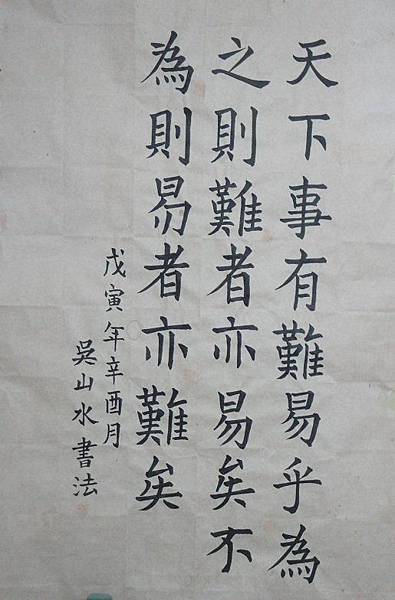 天下事有難易乎為
之則難者亦易矣不
為則易者亦難矣
戊寅年辛酉月
吳山水書法